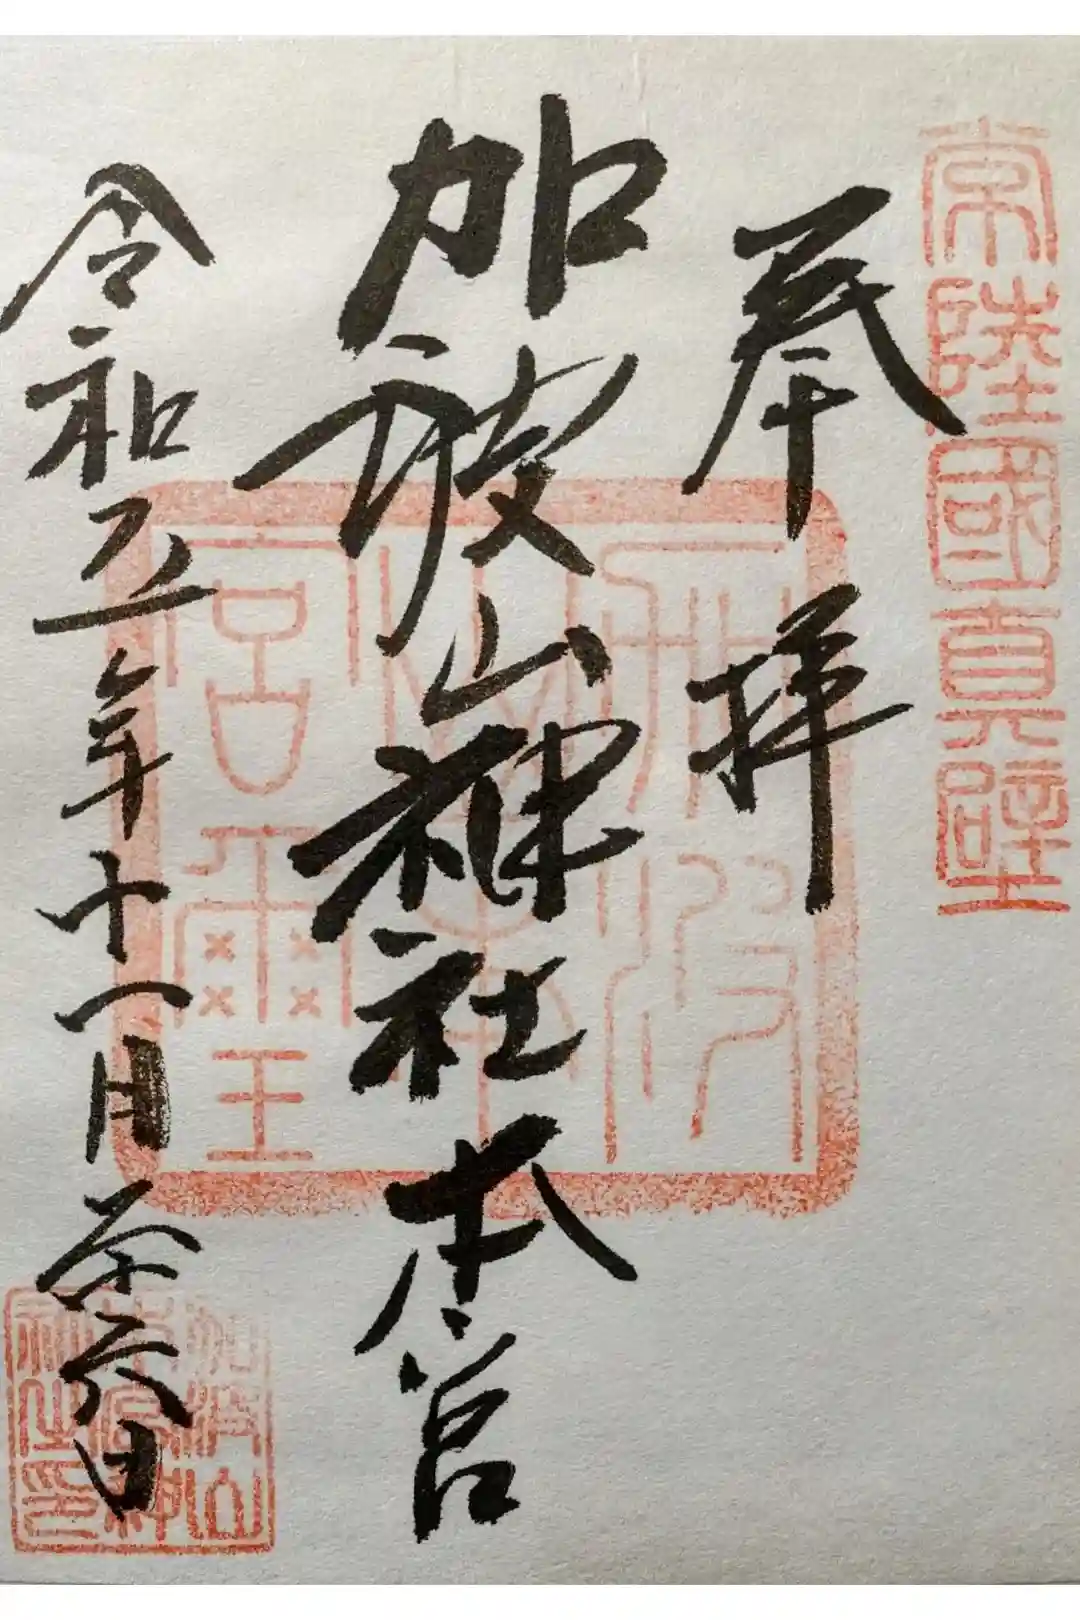 常陸國真壁
奉拝
加波山神社本宮
令和五年十一月二十六日
加波
山本
宮璽
加波山
本宮神
社之印